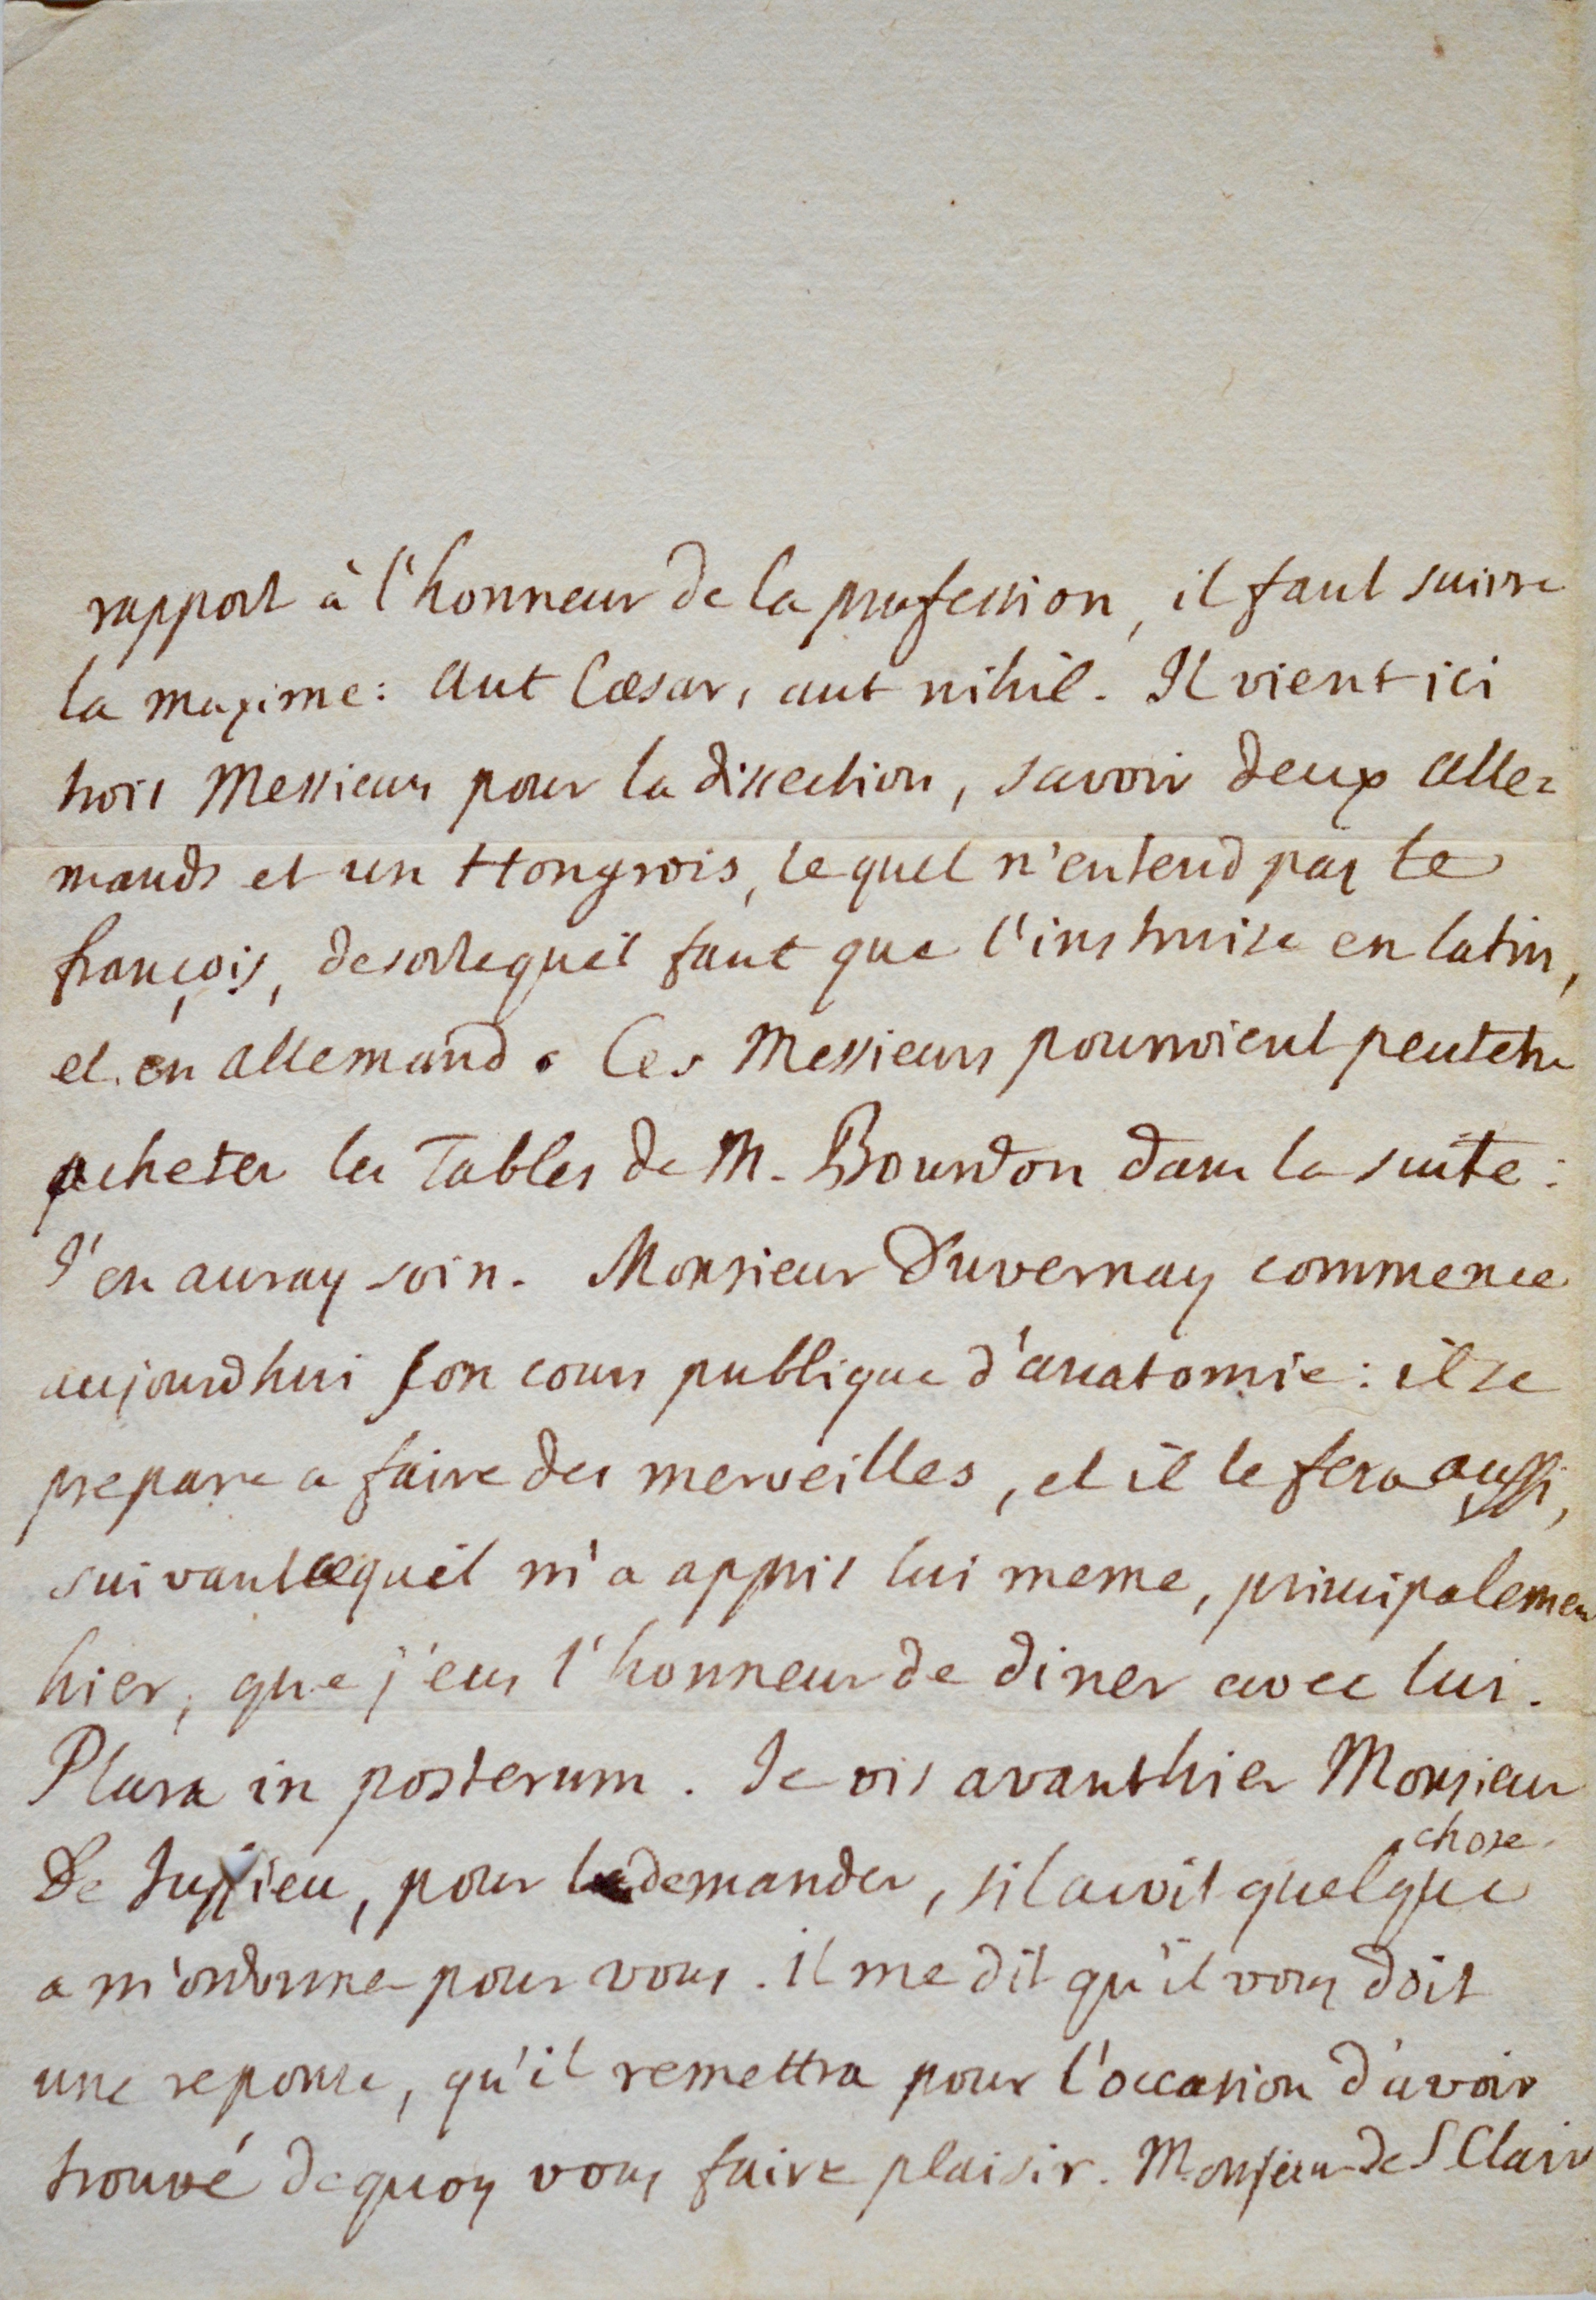 rapport à l'honneur de la profession, il faut suivre
la maxime: Aut Cæsar, aut nihil. Il vient ici
trois Messieurs pour la dissection, savoir deux Alle=
mands et un Hongrois, lequel n'entend pas le
françois, desortequil faut que l'instruise en latin,
et en allemand. Ces Messieurs pourroient peutetre
acheter les Tables de M. Bourdon dans la suite:
J'en auray soin. Monsieur Duvernay commence
aujourdhui son cours publique d'anatomie: il se
prepare a faire des merveilles, et il le fera aussi,
suivant cequil m'a appris lui meme, principalemen
hier, que j'eus l'honneur de diner avec lui.
Plura in posterum. Je vis avanthier Monsieur
De Jussieu, pour le demander, sil avoit quelque chose
a m'ordonner pour vous. il me dit qu'il vous doit
une reponse, qu'il remettra pour l'occasion d'avoir
trouvé dequoy vous faire plaisir. Monsieur de S Clair